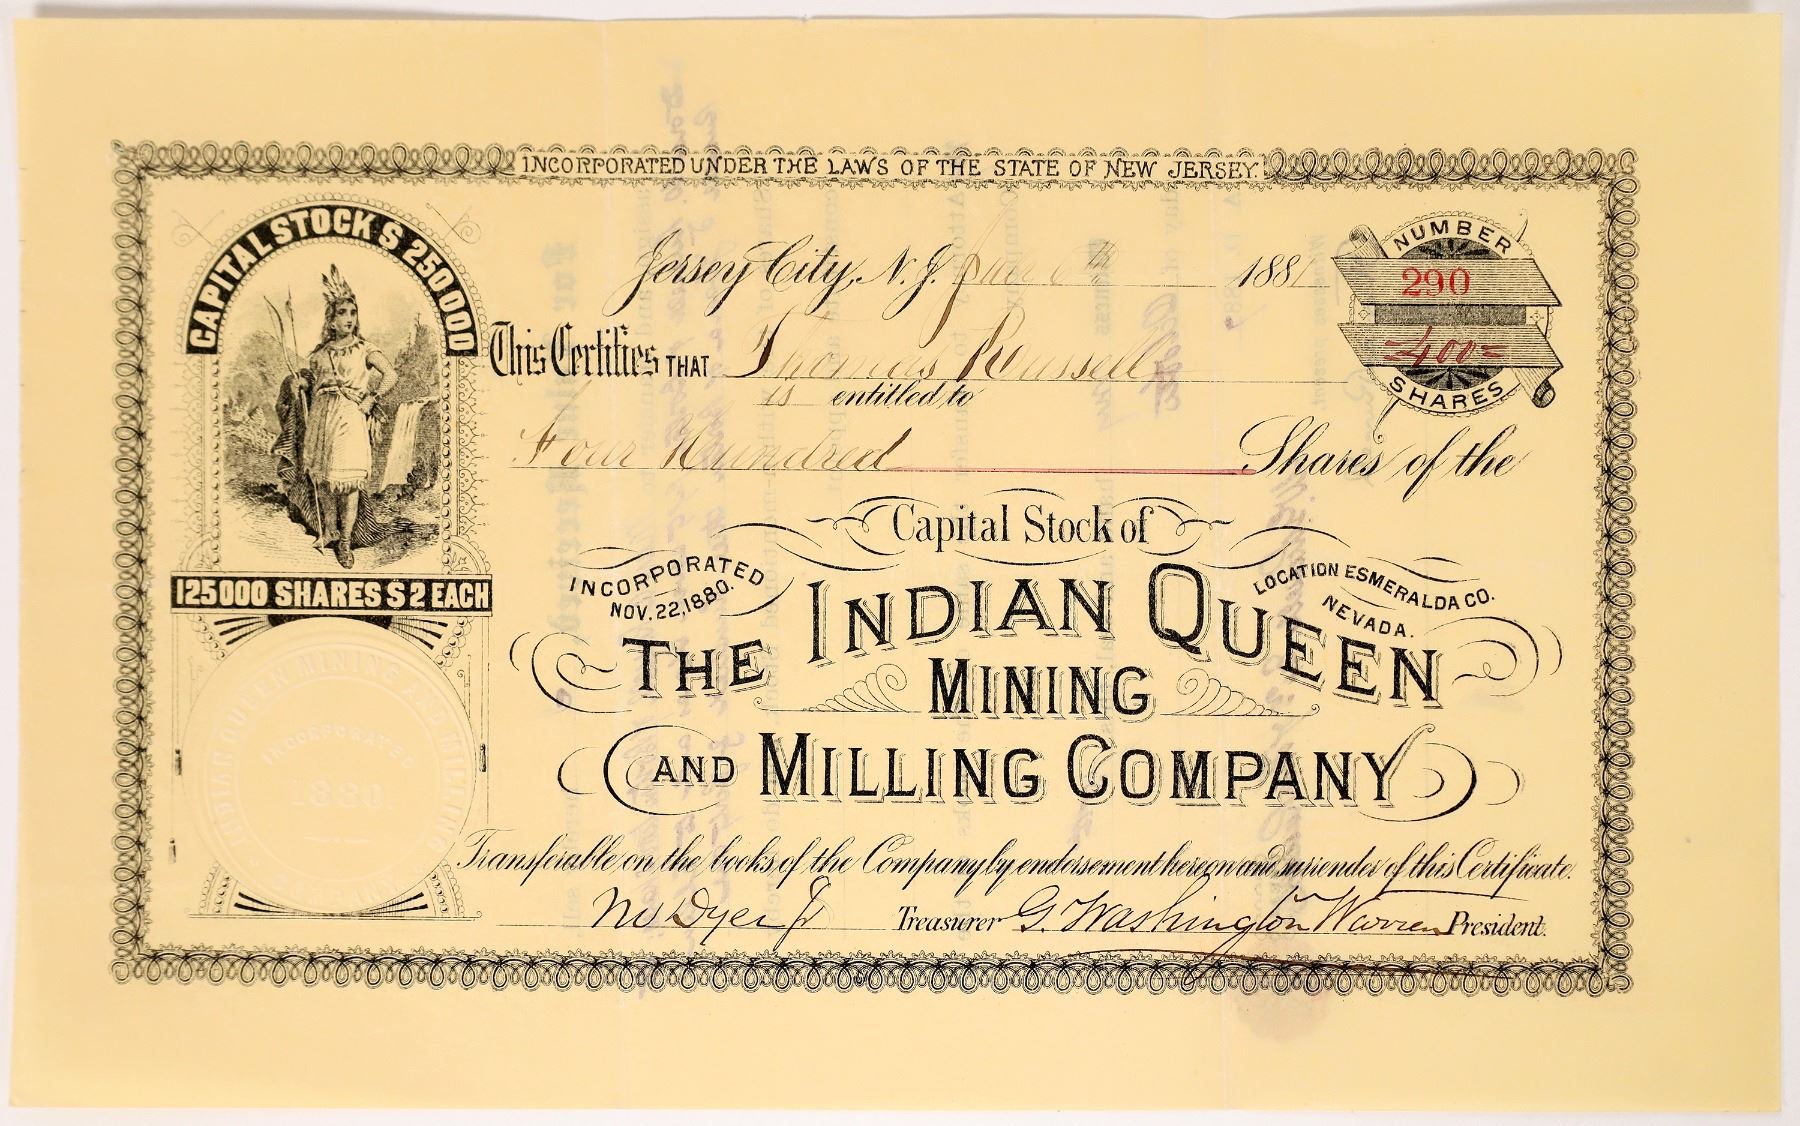 INCORPORATED UNDER THE LAWS OF THE STATE OF NEW JERSEY.
CAPITAL STOCK $250000
125000 SHARES $2 EACH
NUMBER
290
400
SHARES
Jersey City, N.J. 6th 1881
This Certifies THAT Thomas Russell
is entitled to
Four Hundred Shares of the
Capital Stock of
INCORPORATED
NOV. 22, 1880.
LOCATION ESMERALDA CO.
NEVADA.
THE INDIAN QUEEN
MINING
AND MILLING COMPANY
INDIAN QUEEN MINING AND MILLING
INCORPORATED
1880
Transferable on the books of the Company by endorsement hereon and surrender of this Certificate.
Dyer Jr Treasurer G. Washington Warren President.